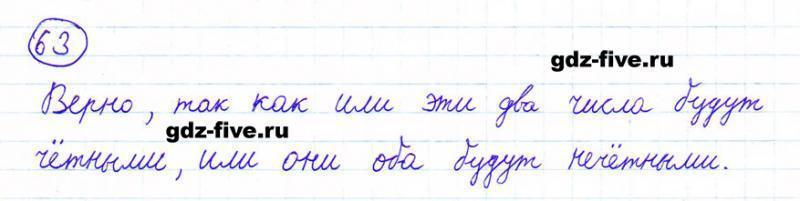 63
gdz-five.ru
Верно, так как или эти два числа будут
gdz-five.ru
чётными, или они оба будут нечётными.